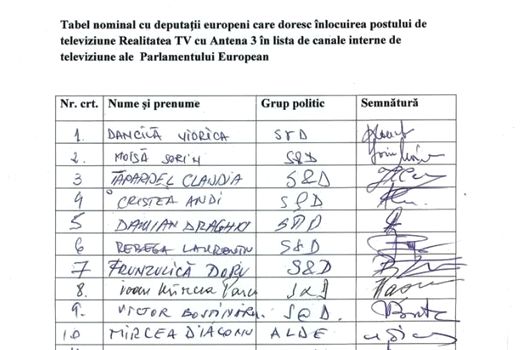 Tabel nominal cu deputații europeni care doresc înlocuirea postului de
televiziune Realitatea TV cu Antena 3 în lista de canale interne de
televiziune ale Parlamentului European
Nr. crt. Nume și prenume Grup politic Semnătură
1. DANCILĂ VIORICA S&D
2. MOISĂ SORIN S&D
3 TAPARDEL CLAUDIA S&D
4 CRISTEA ANDI S&D
5 DAMIAN DRAGHICI S&D
6 REBEGA LAURENȚIU S&D
7 FRUNZULICĂ DORU S&D
8. Ioan Mircea Pașcu S&D
9. VICTOR BOȘTINARU S&D
10 MIRCEA DIACONU ALDE